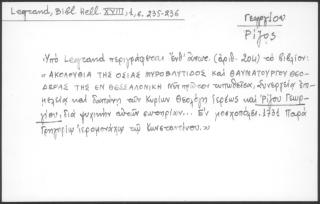 Legrand, Bibl. Hell. XVIII, 1, σ. 235-236
Γεωργίου
Ρίζος
Ὑπὸ Legrand περιγράφεται ὑπ' ἀριθ. (ἀριθ. 204) τὸ βιβλίον:
« ΑΚΟΛΟΥΘΙΑ ΤΗΣ ΟΣΙΑΣ ΜΥΡΟΒΛΥΤΙΔΟΣ ΚΑΙ ΘΑΥΜΑΤΟΥΡΓΟΥ ΘΕΟ-
ΔΩΡΑΣ ΤΗΣ ΕΝ ΘΕΣΣΑΛΟΝΙΚΗ Νῦν πρῶτον τυπωθεῖσα, Συνεργείᾳ ἐπι-
μελείᾳ καὶ δαπάνῃ τῶν Κυρίων Θεολόγη Ἱερέως καὶ Ρίζου Γεωρ-
γίου, διὰ ψυχικὴν αὐτῶν σωτηρίαν... Ἐν Μοσχοπόλει. 1731 Παρὰ
Γρηγορίῳ ἱερομονάχῳ τῷ Κωνσταντινίδῃ.»